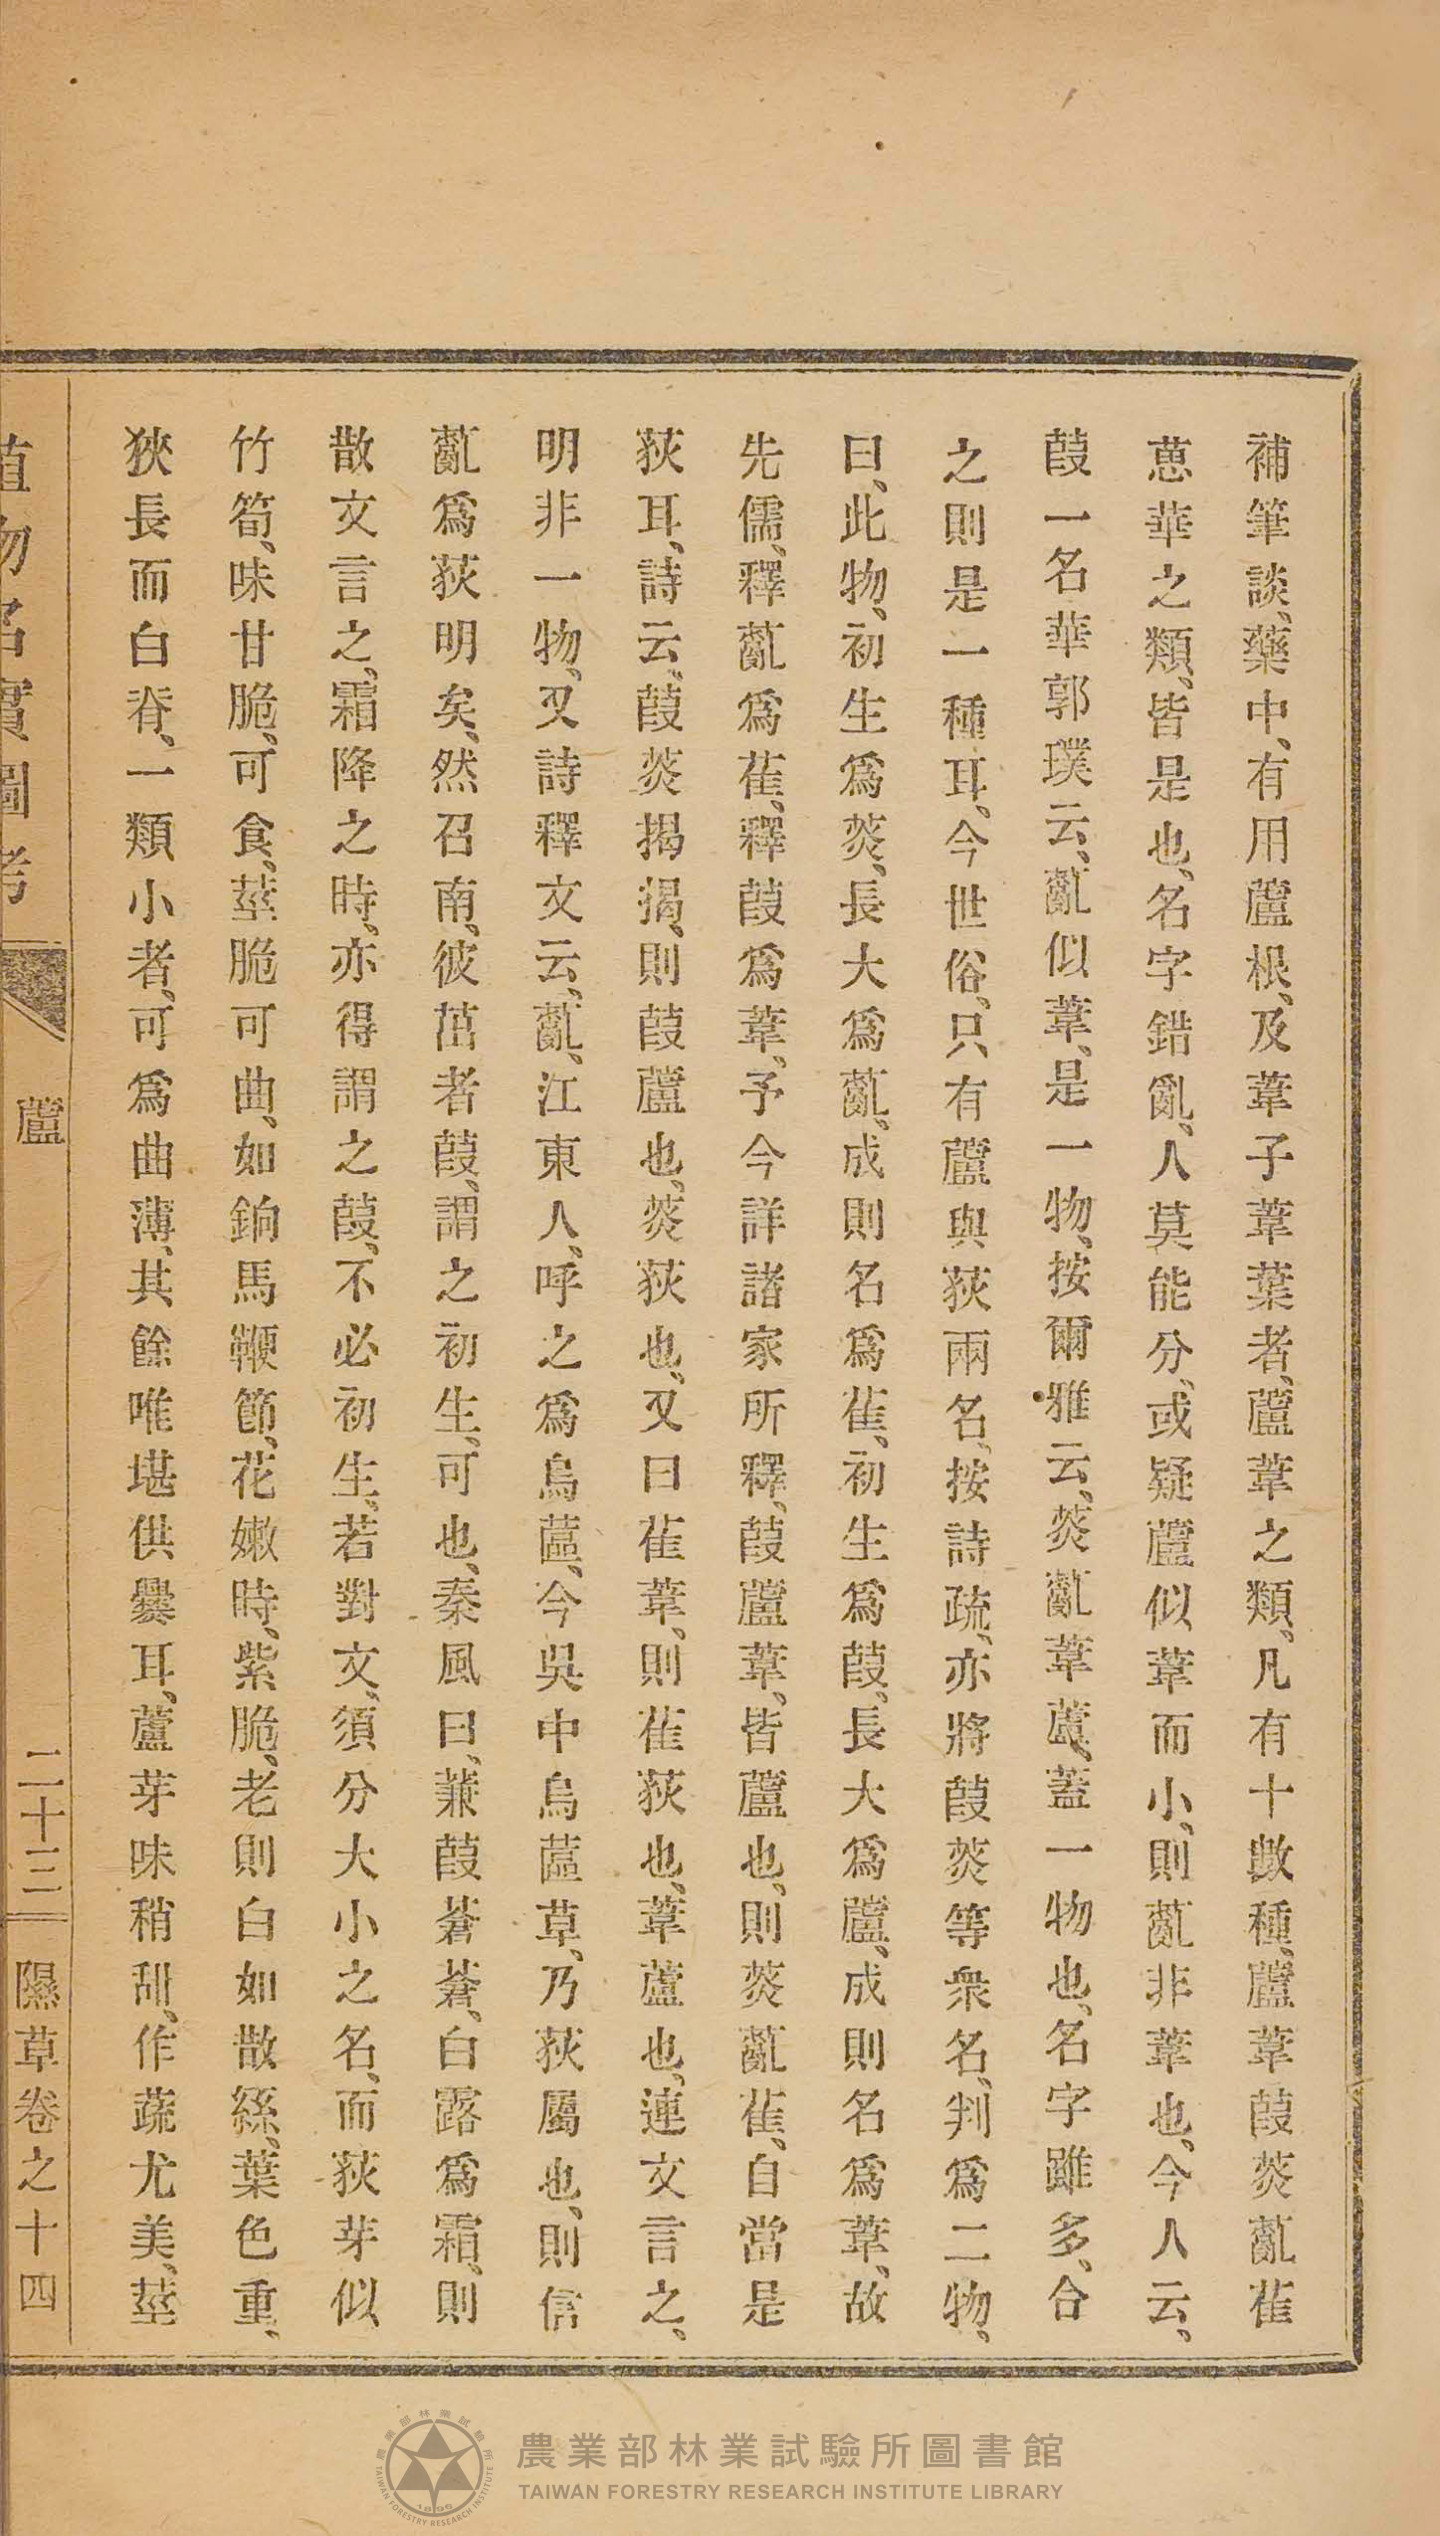 補筆談、藥中、有用蘆根、及葦子葦葉者、蘆葦之類、凡有十數種、蘆葦葭菼薍萑
葸華之類、皆是也、名字錯亂、人莫能分、或疑蘆似葦而小、則薍非葦也、今人云、
葭一名華郭璞云、薍似葦、是一物、按爾雅云、菼薍葦蘆、蓋一物也、名字雖多、合
之則是一種耳、今世俗、只有蘆與荻兩名、按詩疏、亦將葭菼等衆名、判爲二物、
曰、此物、初生爲菼、長大爲薍、成則名爲萑、初生爲葭、長大爲蘆、成則名爲葦、故
先儒、釋薍爲萑、釋葭爲葦、予今詳諸家所釋、葭蘆葦、皆蘆也、則菼薍萑、自當是
荻耳、詩云、葭菼揭揭、則葭蘆也、菼荻也、又曰萑葦、則萑荻也、葦蘆也、連文言之、
明非一物、又詩釋文云、薍、江東人、呼之爲烏蓲、今吳中烏蓲草、乃荻屬也、則信
薍爲荻明矣、然召南、彼茁者葭、謂之初生、可也、秦風曰、蒹葭蒼蒼、白露爲霜、則
散文言之、霜降之時、亦得謂之葭、不必初生、若對文、須分大小之名、而荻芽似
竹筍、味甘脆、可食、莖脆可曲、如鉤馬鞭節、花嫩時、紫脆、老則白如散絲、葉色重、
狹長而白脊、一類小者、可爲曲薄、其餘唯堪供爨耳、蘆芽味稍甜、作蔬尤美、莖
植物名實圖考 蘆 二十三 隰草卷之十四
農業部林業試驗所圖書館
TAIWAN FORESTRY RESEARCH INSTITUTE LIBRARY
農業部林業試驗所
TAIWAN FORESTRY RESEARCH INSTITUTE
1895